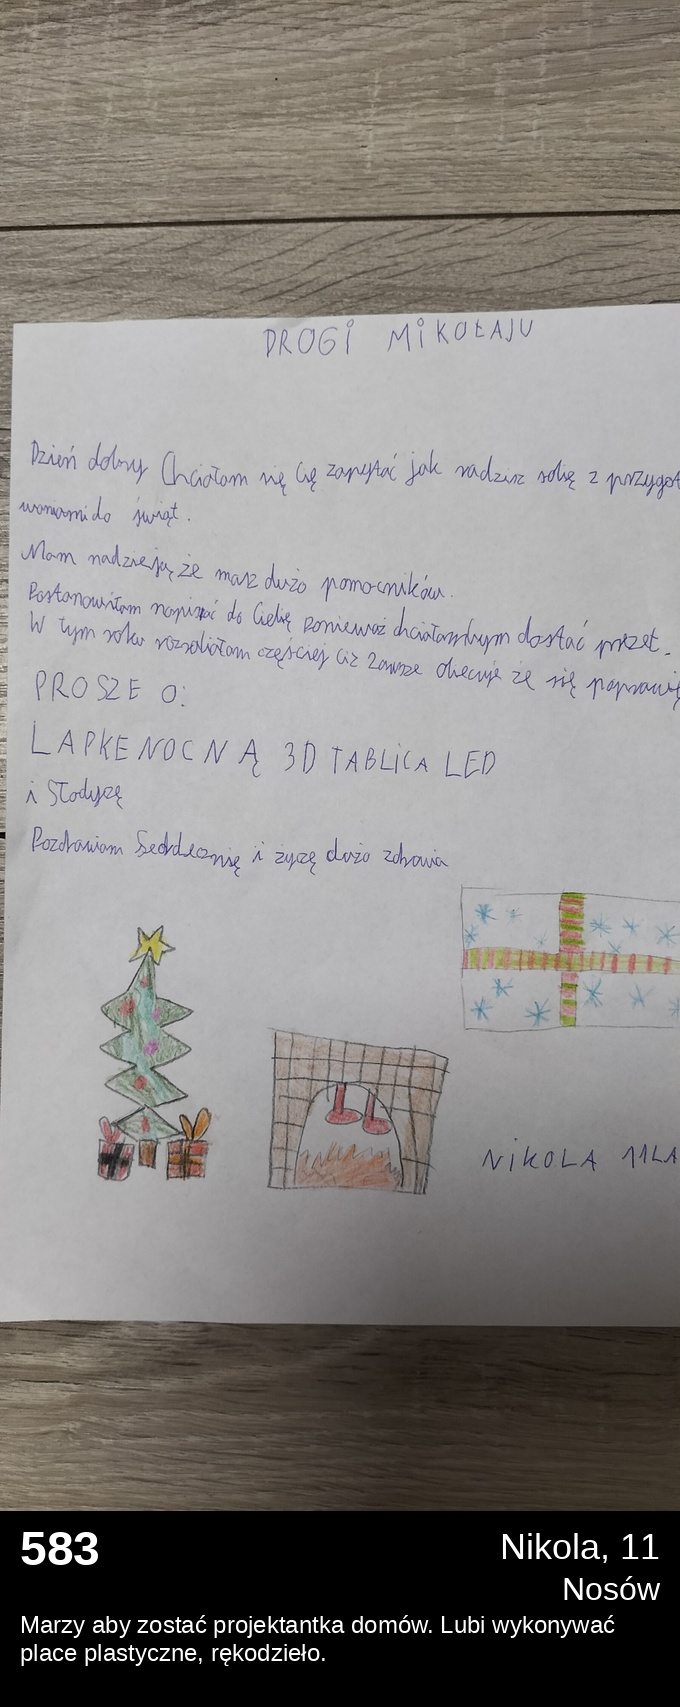 DROGI MIKOŁAJU
Dzień dobry Chciałam się Cię zapytać jak radzisz sobię z przygot
waniami do świąt.
Mam nadzieję, że masz dużo pomocników.
Postanowiłam napisać do Ciebię ponieważ chciałambym dostać prezet.
W tym roku rozrabiałam częściej niż zawsze obiecuje że się poprawię
PROSZE O:
LAPKE NOCNĄ 3D TABLICA LED
i Słodyczę
Pozdrawiam Serddecznię i życzę dużo zdrowia
NIKOLA 11LA
583
Nikola, 11
Nosów
Marzy aby zostać projektantka domów. Lubi wykonywać
place plastyczne, rękodzieło.